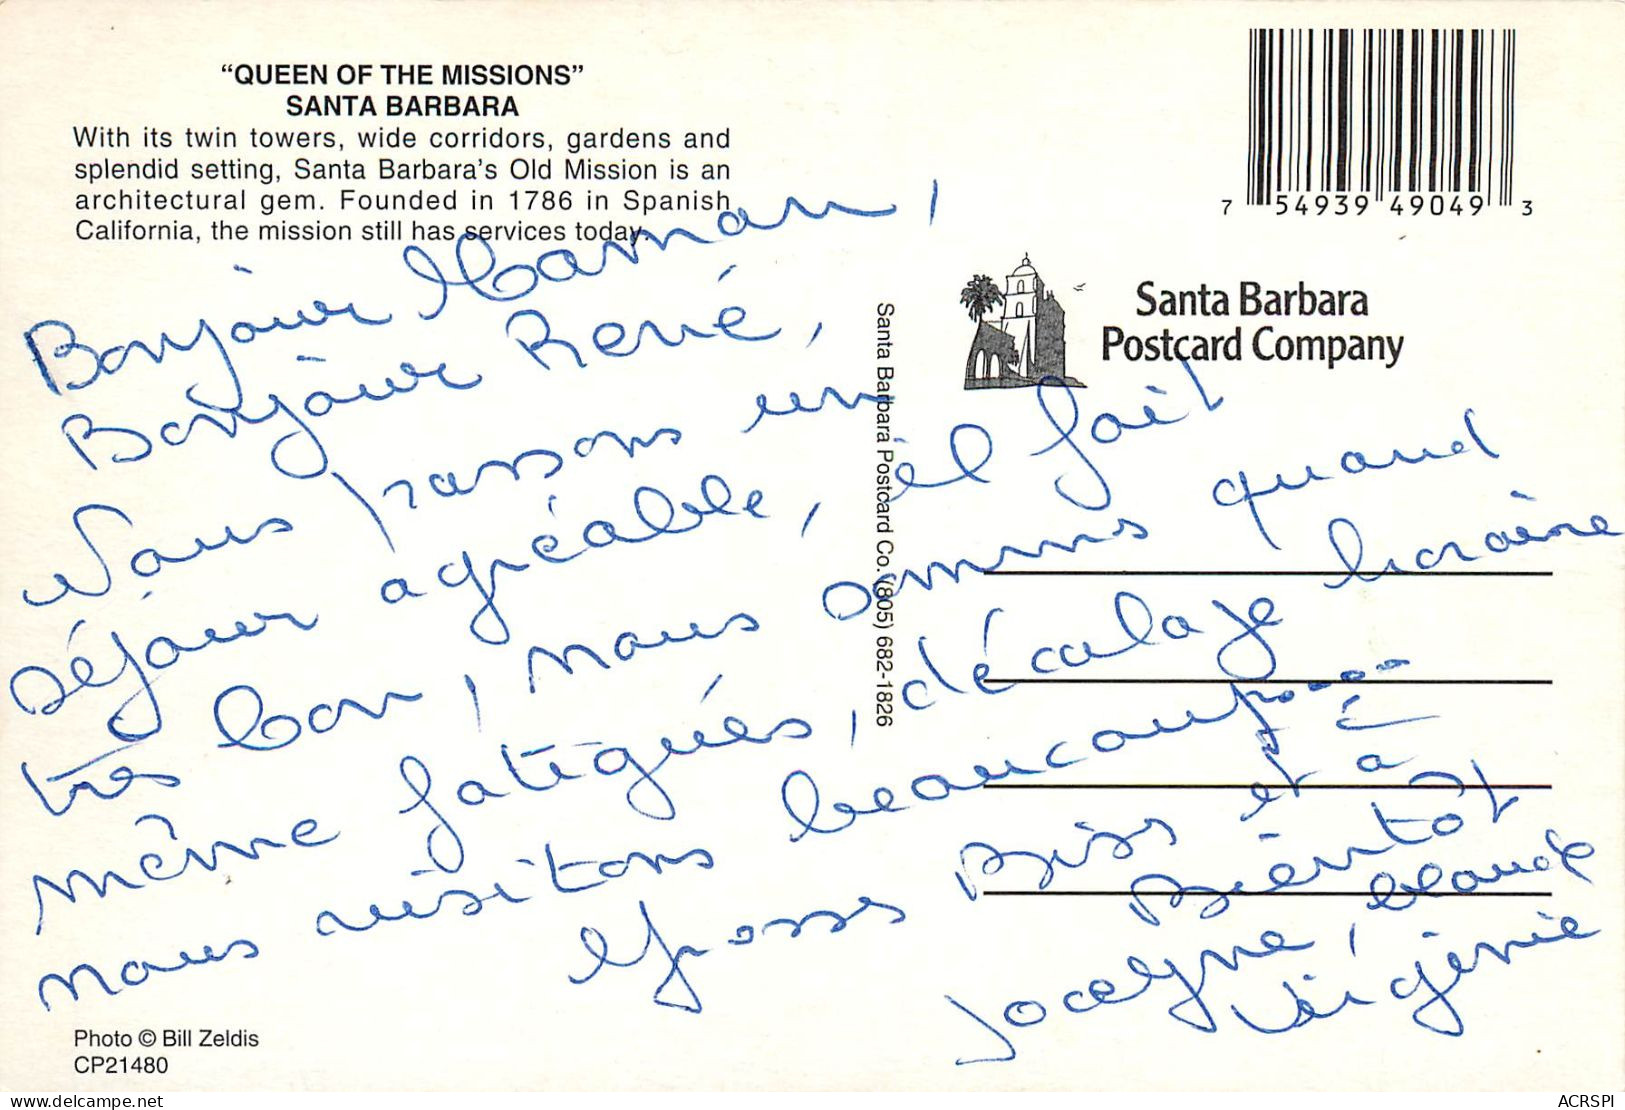 “QUEEN OF THE MISSIONS”
SANTA BARBARA
With its twin towers, wide corridors, gardens and
splendid setting, Santa Barbara’s Old Mission is an
architectural gem. Founded in 1786 in Spanish
California, the mission still has services today.
7 54939 49049 3
Santa Barbara
Postcard Company
Santa Barbara Postcard Co. (805) 682-1826
Bonjour Maman,
Bonjour René,
Nous passons un
séjour agréable, il fait
très bon, nous sommes quand
même fatigués, décalage horaire
nous visitons beaucoup....
Grosses Bises et à
Bientôt
Jocelyne, Claude
Virginie
Photo © Bill Zeldis
CP21480
www.delcampe.net
ACRSPI